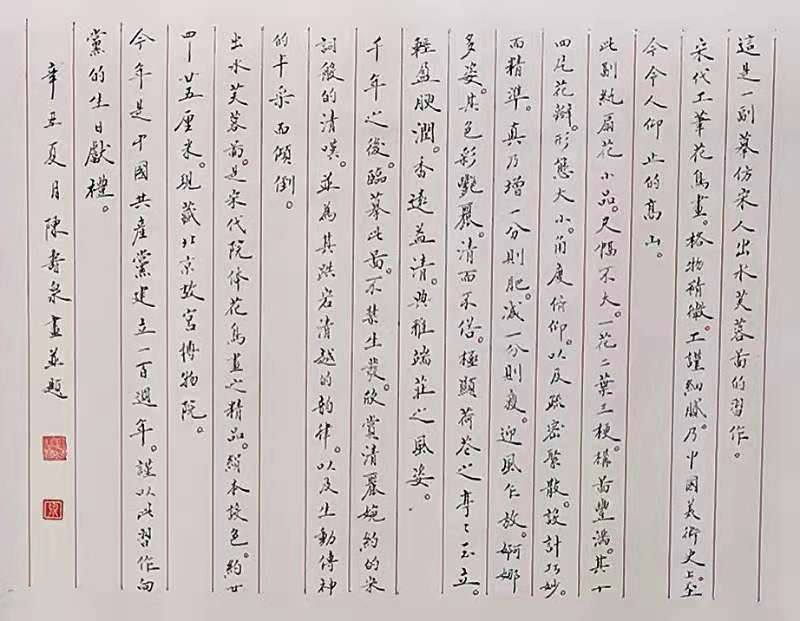 這是一副摹仿宋人出水芙蓉啚的習作。
宋代工筆花鳥畫。格物精微。工謹細膩。乃中國美術史上。至
今令人仰止的高山。
此副紈扇花小品。尺幅不大。一花二葉三梗。構啚豐滿。其十
四片花瓣。形態大小。角度俯仰。以及疏密聚散。設計巧妙。
而精準。真乃增一分則肥。減一分則瘦。迎風乍放。婀娜
多姿。其色彩艷麗。清而不俗。極顯荷花之亭亭玉立。
輕盈腴潤。香遠益清。典雅端莊之風姿。
千年之後。臨摹此啚。不禁生發。欣賞清麗婉約的宋
詞般的清嘆。並為其跌宕清越的韵律。以及生動傳神
的丰采而傾倒。
出水芙蓉啚。是宋代院体花鳥畫之精品。絹本設色。約廿
四一廿五厘米。現藏北京故宮博物院。
今年是中國共產黨建立一百週年。謹以此習作向
黨的生日獻禮。
辛丑夏月陳壽泉畫並題